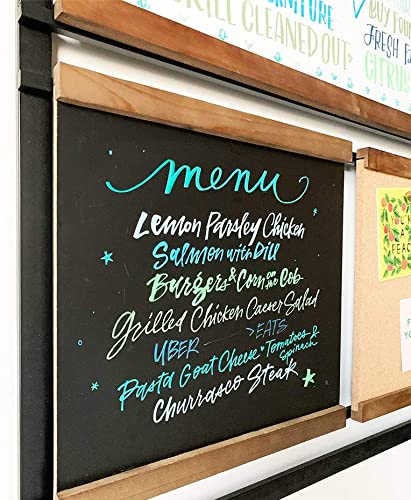 FURNITURE
CLEANED OUT
BUY FOU
FRESH F
CITRUS
menu
Lemon Parsley Chicken
Salmon with Dill
Burgers & Corn on the Cob
Grilled Chicken Caeser Salad
UBER → EATS
Pasta Goat Cheese • Tomatoes & Spinach
Churrasco Steak